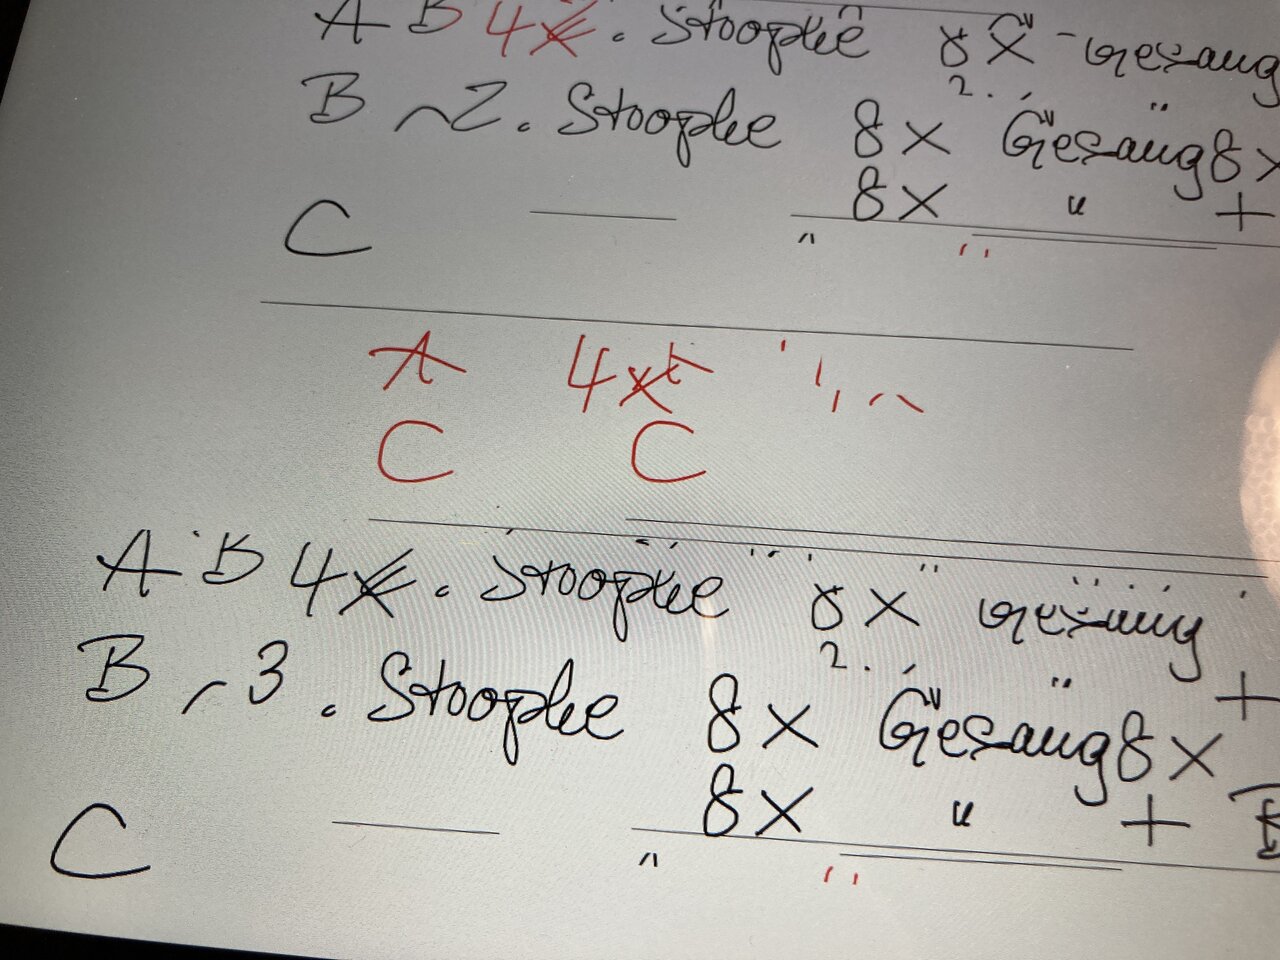 A B 4x. Stoophe 8x - Gesang
2. "
B ~2. Stoophe 8x Gesaug 8x
8x " +
C
" "
A 4x
C C
A B 4x. Stoophe 8x Gesang
2. " +
B ~3. Stoophe 8x Gesaug 8x
8x " + B
C
" "